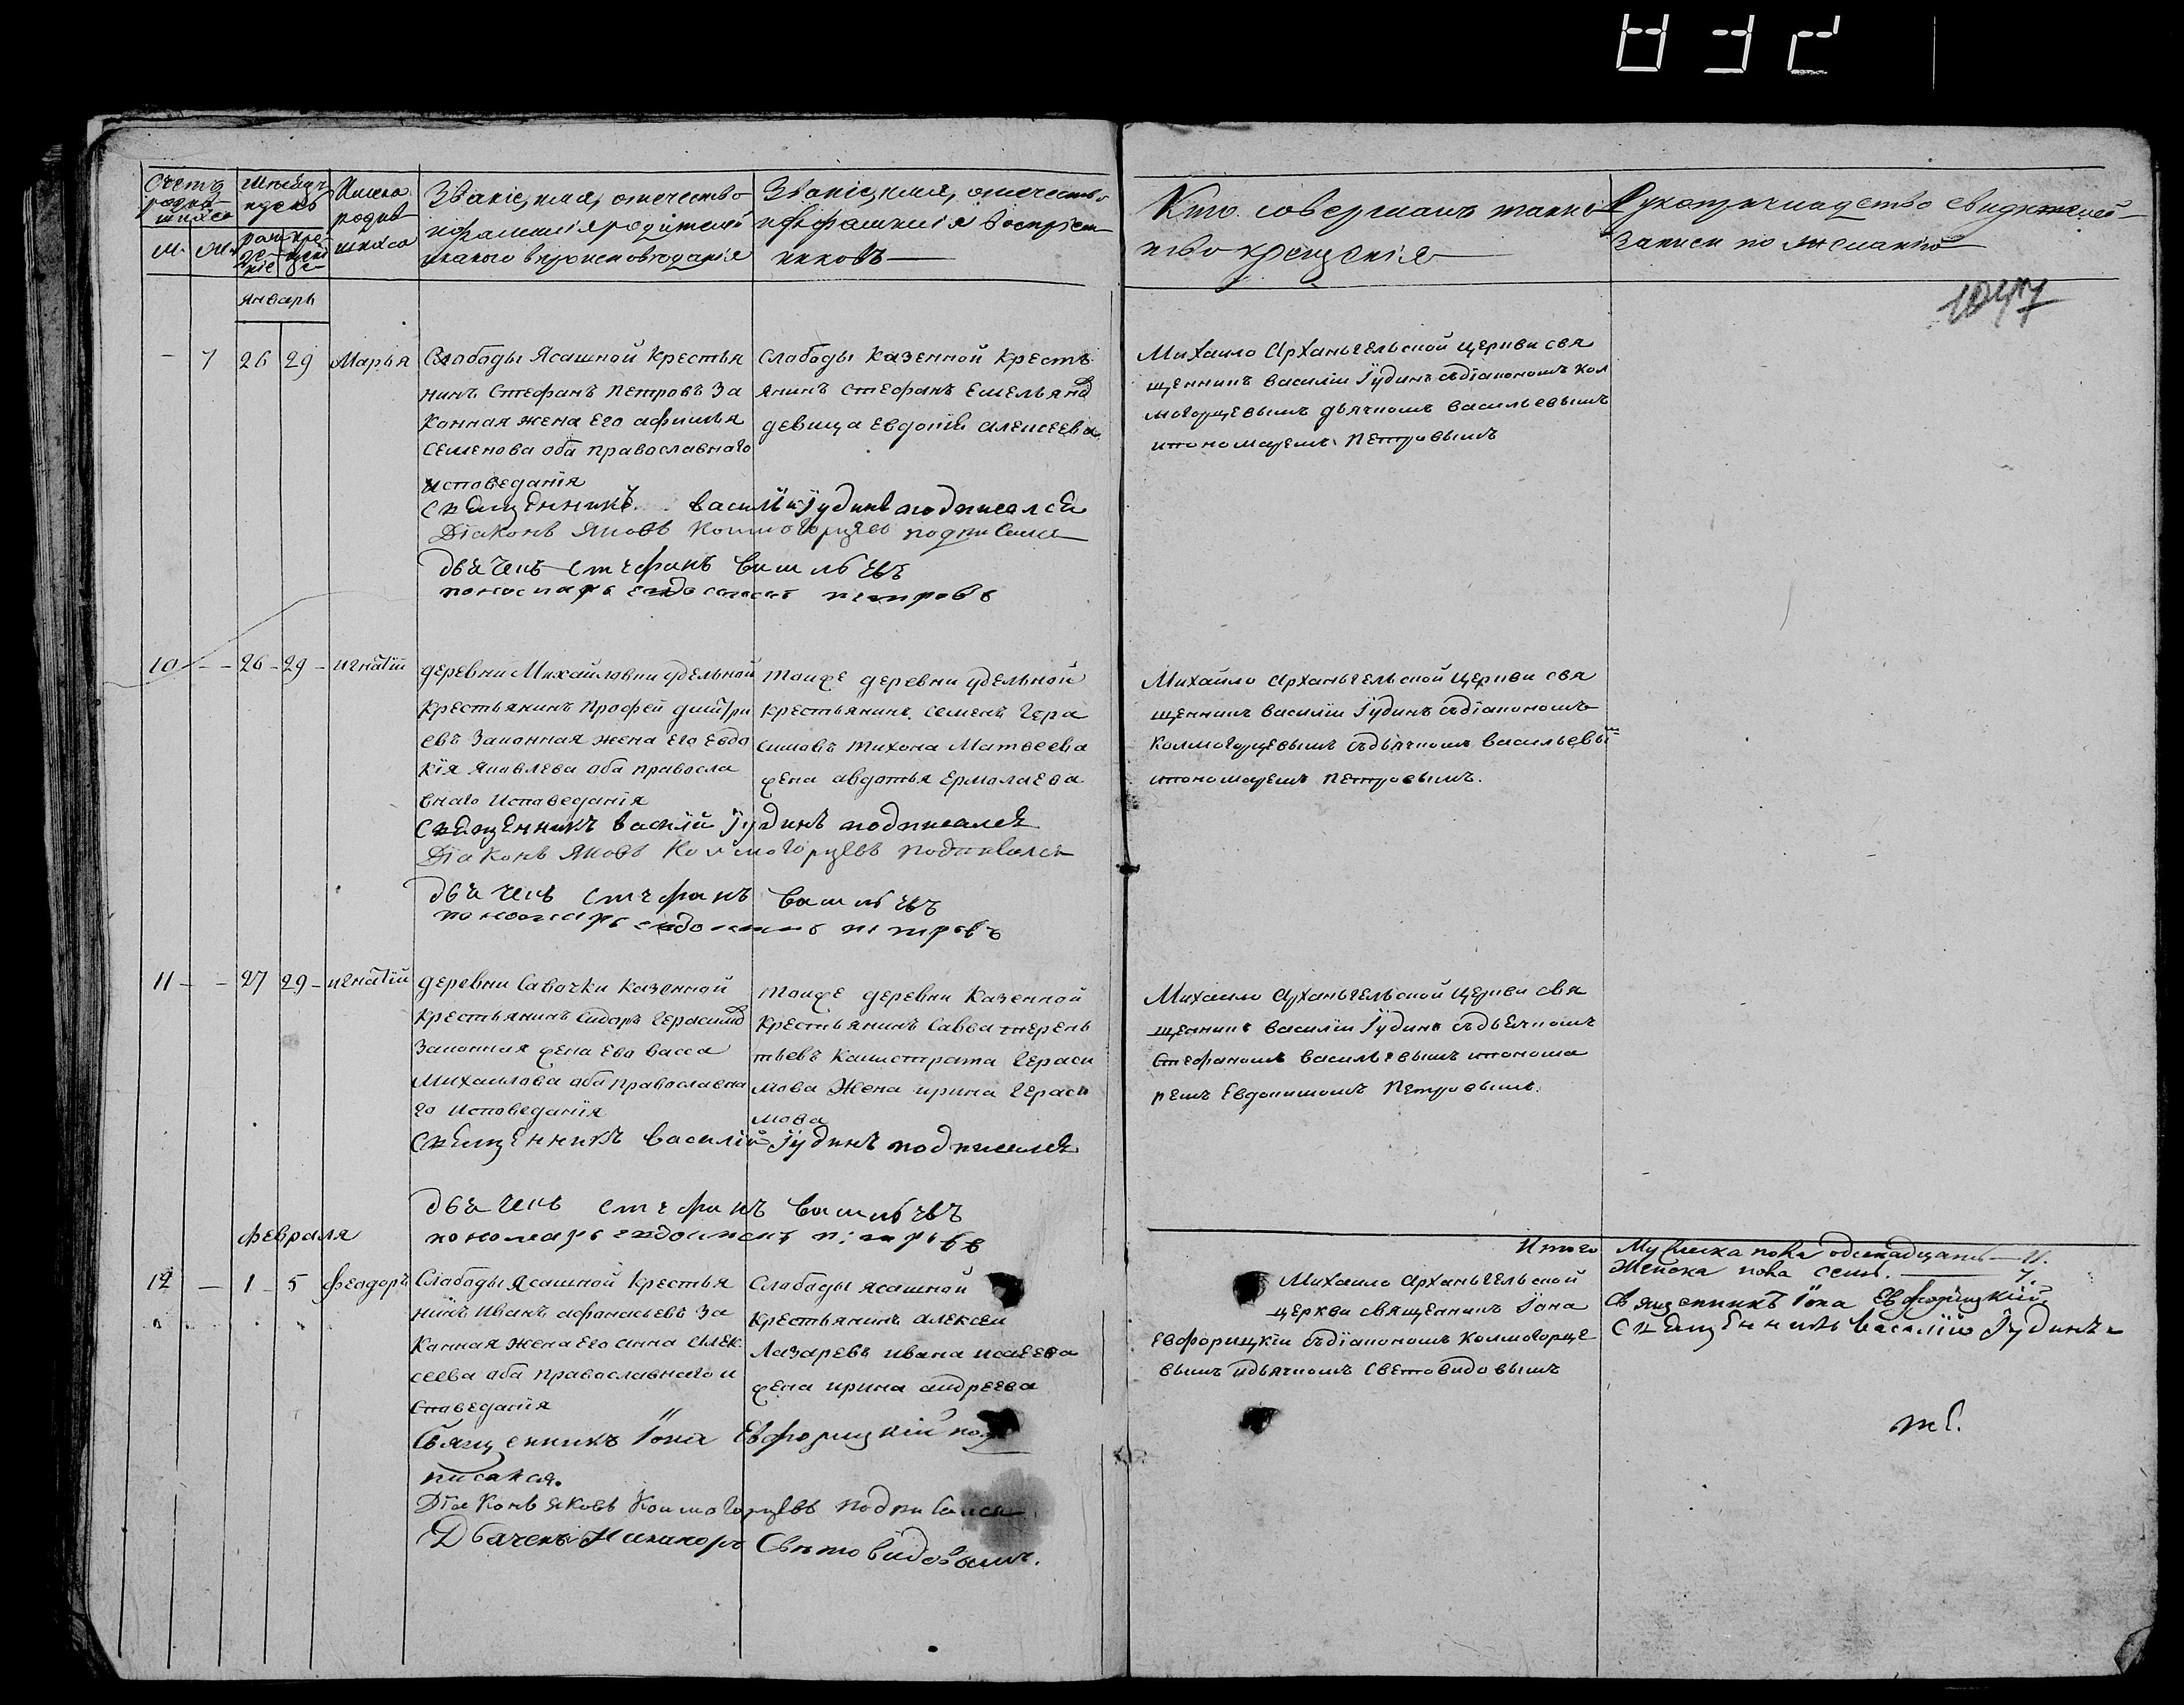 832
Счетъ родив шихся
Месяцъ и день
Имена родив шихся
Званіе, имя, отечество
и фамилія родителей
и какого вероисповеданія
Званіе, имя, отечество
и фамилія воспріем
никовъ
Кто совершалъ таинс
тво крещенія
Рукоприкладство свидетелей
записи по желанію
м. ж. рож де ніе кре щені е
январь
1047
— 7 26 29 Марья
Слабоды Ясашной Крестья
нинъ Стефанъ Петровъ За
конная жена Его афимья
Семенова оба православнаго
исповеданія
Слабоды Казенной Кресть
янинъ Стефанъ Емельяно
девица Евдокія алексеева
Михаило Архангельской церкви свя
щенникъ василіи Іудинъ съдіакономъ Кол
могорцевымъ дьячкомъ васильевымъ
ипономаремъ Петровымъ
священникъ василій Іудинъ подписался
Діаконъ Яковъ Колмогорцевъ подписался
дьячекъ стефанъ васильевъ
пономарь евдокимъ петровъ
10 — 26 — 29 — игнатіи
деревни Михайловки удельной
Крестьянинъ Профеи дмитри
евъ Законная жена Его Евдо
кія Яковлева оба правосла
внаго Исповеданія
Тоиже деревни удельной
Крестьянинъ Семенъ Гера
симовъ Тихона Матвеева
жена авдотья Ермолаева
Михаило Архангельской церкви свя
щенникъ василіи Іудинъ съдіакономъ
Колмогорцевымъ съдьячкомъ васильевы
ипономаремъ Петровымъ.
священникъ василій Іудинъ подписался
Діаконъ Яковъ Колмогорцевъ подписался
дьячекъ стефанъ васильевъ
пономарь евдокимъ петровъ
11 — — 27 29 — игнатій
деревни Савочки Казенной
Крестьянинъ Сидоръ Герасимо
Законная жена Ево васса
Михаилова оба православна
го Исповеданія
Тоиже деревни Казенной
Крестьянинъ Савва терень
тьевъ Калистрата Гераси
мова Жена ирина Гераси
мова
Михаило Архангельской церкви свя
щенникъ василіи Іудинъ съдьячкомъ
Стефаномъ васильевымъ ипонома
ремъ Евдокимомъ Петровымъ.
священникъ василій Іудинъ подписался
дьячекъ стефанъ васильевъ
пономарь евдокимъ петровъ
февраля
12 — 1 — 5 феодоръ
Слабоды Ясашной Крестья
нинъ Иванъ афанасьевъ За
конная жена Его анна алек
сеева оба православнаго и
споведанія
Слабоды Ясашной
Крестьянинъ алексеи
Лазаревъ ивана исаева
жена ирина андреева
Михаило Архангельской
церкви священникъ Іона
евфорицкіи съдіакономъ Колмогорце
вымъ идьячкомъ Световидовымъ
Священникъ Іона Евфорицкій под
писался.
Діаконъ яковъ Колмогорцевъ подписался
Дьячекъ Никаноръ Световидовымъ.
Итого Мужеска пола одинадцать — 11.
Женска пола семь. — 7.
Священникъ Іона Евфорицкій
священникъ василій Іудинъ